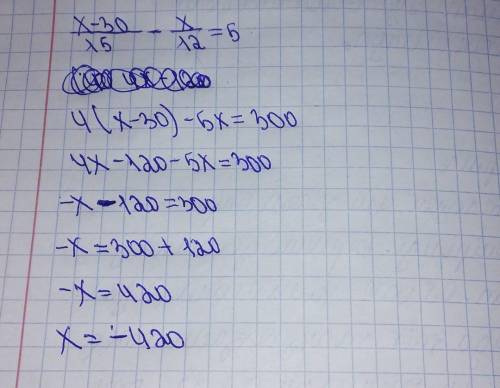 x-30/15 - x/12 = 5
4(x-30)-5x=300
4x-120-5x=300
-x-120=300
-x=300+120
-x=420
x=-420